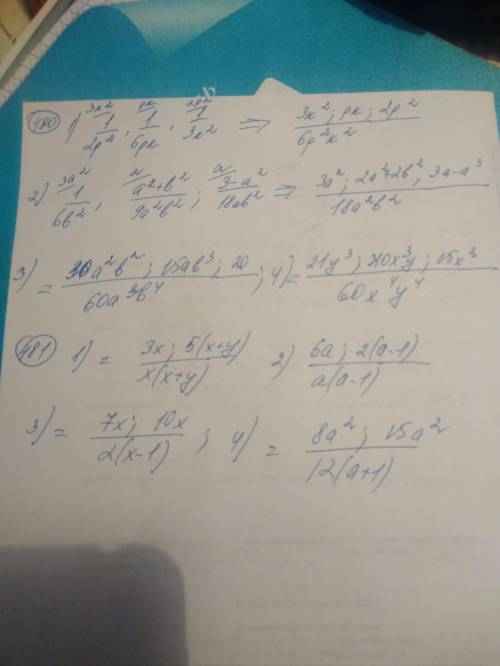 480 1) 3k² 1/2p², pk 1/6pk, 2p² 1/3k² ⇒ 3k²; pk; 2p² / 6p²k²
2) 3a² 1/6b², 2 a²+b²/9a²b²; a 3-a²/18ab² ⇒ 3a²; 2a²+2b², 3a-a³ / 18a²b²
3) = 30a²b²; 15ab³; 20 / 60a³b⁴; 4) = 21y³; 20x³y; 15x² / 60x⁴y⁴
481 1) = 3x; 5(x+y) / x(x+y) 2) 6a; 2(a-1) / a(a-1)
3) = 7x; 10x / 2(x-1); 4) = 8a²; 15a² / 12(a+1)